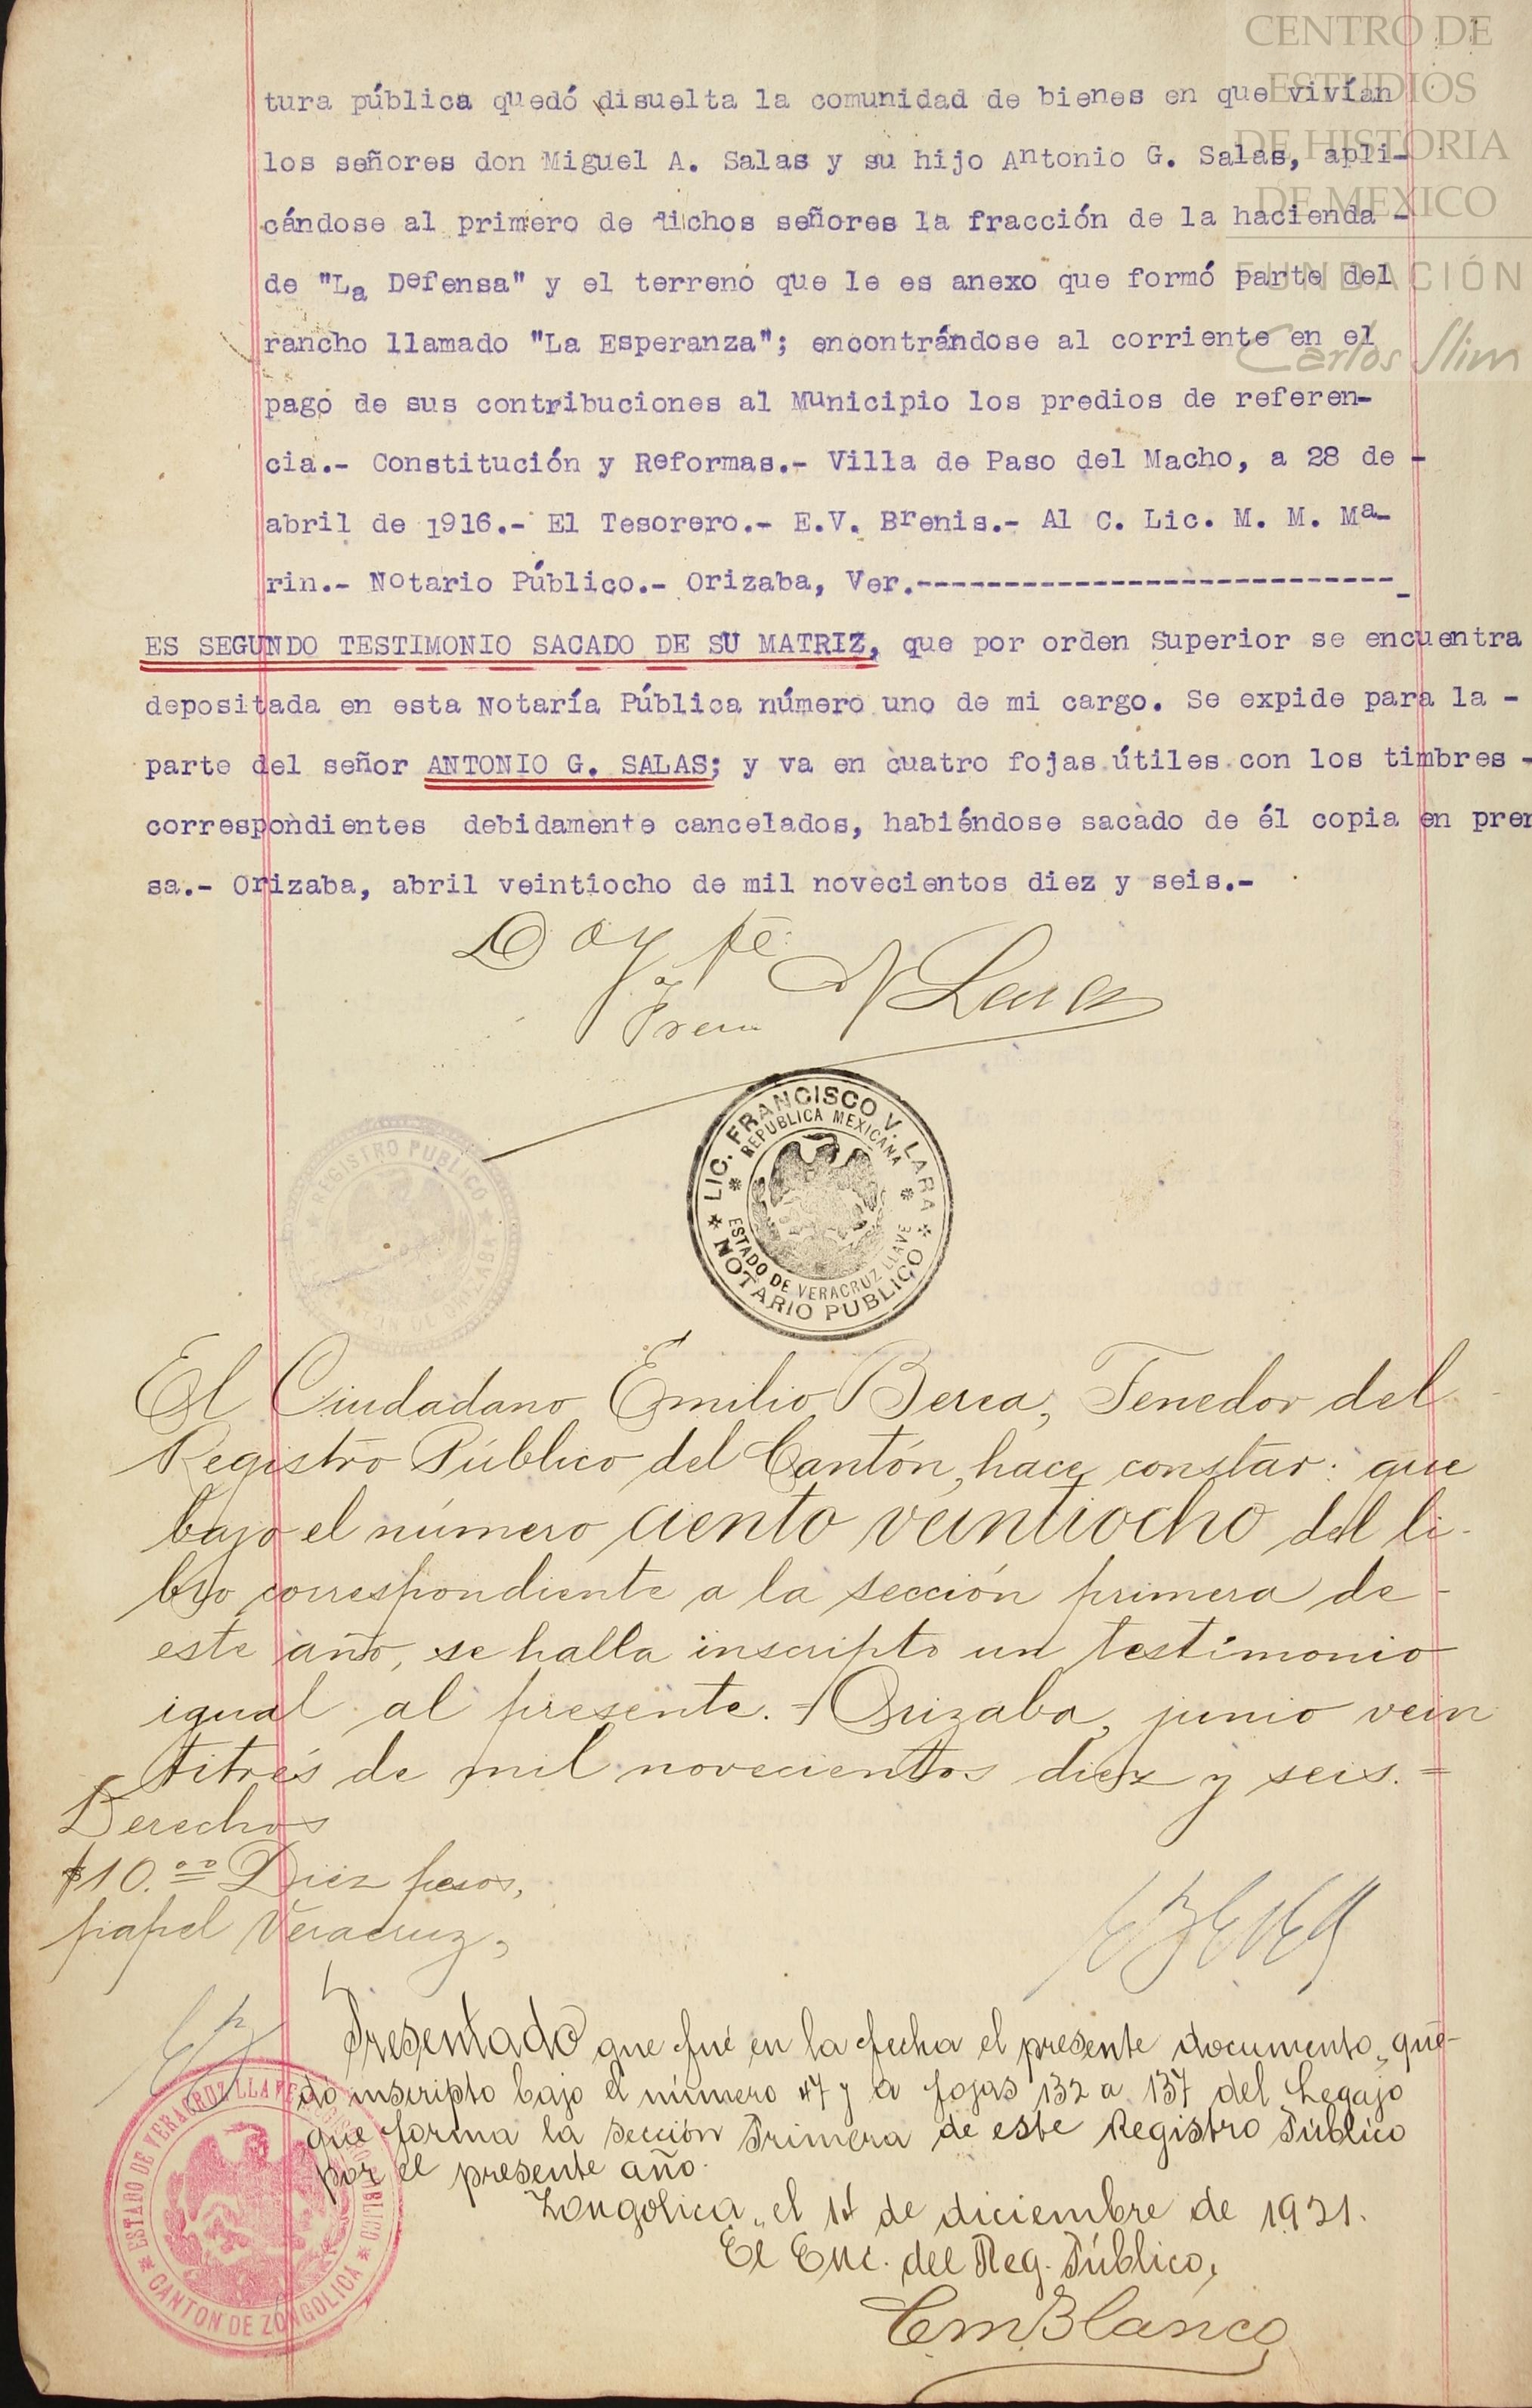 CENTRO DE
ESTUDIOS
DE HISTORIA
DE MEXICO
FUNDACIÓN
Carlos Slim
tura pública quedó disuelta la comunidad de bienes en que vivían
los señores don Miguel A. Salas y su hijo Antonio G. Salas, apli-
cándose al primero de dichos señores la fracción de la hacienda -
de "La Defensa" y el terreno que le es anexo que formó parte del
rancho llamado "La Esperanza"; encontrándose al corriente en el
pago de sus contribuciones al Municipio los predios de referen-
cia.- Constitución y Reformas.- Villa de Paso del Macho, a 28 de -
abril de 1916.- El Tesorero.- E.V. Brenis.- Al C. Lic. M. M. Ma-
rin.- Notario Público.- Orizaba, Ver.----------------------------
ES SEGUNDO TESTIMONIO SACADO DE SU MATRIZ, que por orden Superior se encuentra
depositada en esta Notaría Pública número uno de mi cargo. Se expide para la -
parte del señor ANTONIO G. SALAS; y va en cuatro fojas útiles con los timbres -
correspondientes debidamente cancelados, habiéndose sacado de él copia en pren
sa.- Orizaba, abril veintiocho de mil novecientos diez y seis.-
Doy fe.
Lara
LIC. FRANCISCO V. LARA
REPUBLICA MEXICANA
ESTADO DE VERACRUZ LLAVE
NOTARIO PUBLICO
REGISTRO PUBLICO
CANTON DE ORIZABA
El Ciudadano Emilio Berea, Tenedor del
Registro Público del Cantón, hace constar: que
bajo el número ciento veintiocho del li-
bro correspondiente a la sección primera de -
este año, se halla inscripto un testimonio
igual al presente. = Orizaba, junio vein
titrés de mil novecientos diez y seis. =
Derechos
$10.00 Diez pesos,
papel Veracruz,
EBerea
Presentado que fué en la fecha el presente documento, que-
do inscripto bajo el número 47 y a fojas 132 a 137 del Legajo
que forma la sección Primera de este Registro Público
por el presente año.
Zongolica, el 1º de diciembre de 1921.
El Enc. del Reg. Público,
C.M. Blanco
ESTADO DE VERACRUZ LLAVE REGISTRO PUBLICO
CANTON DE ZONGOLICA